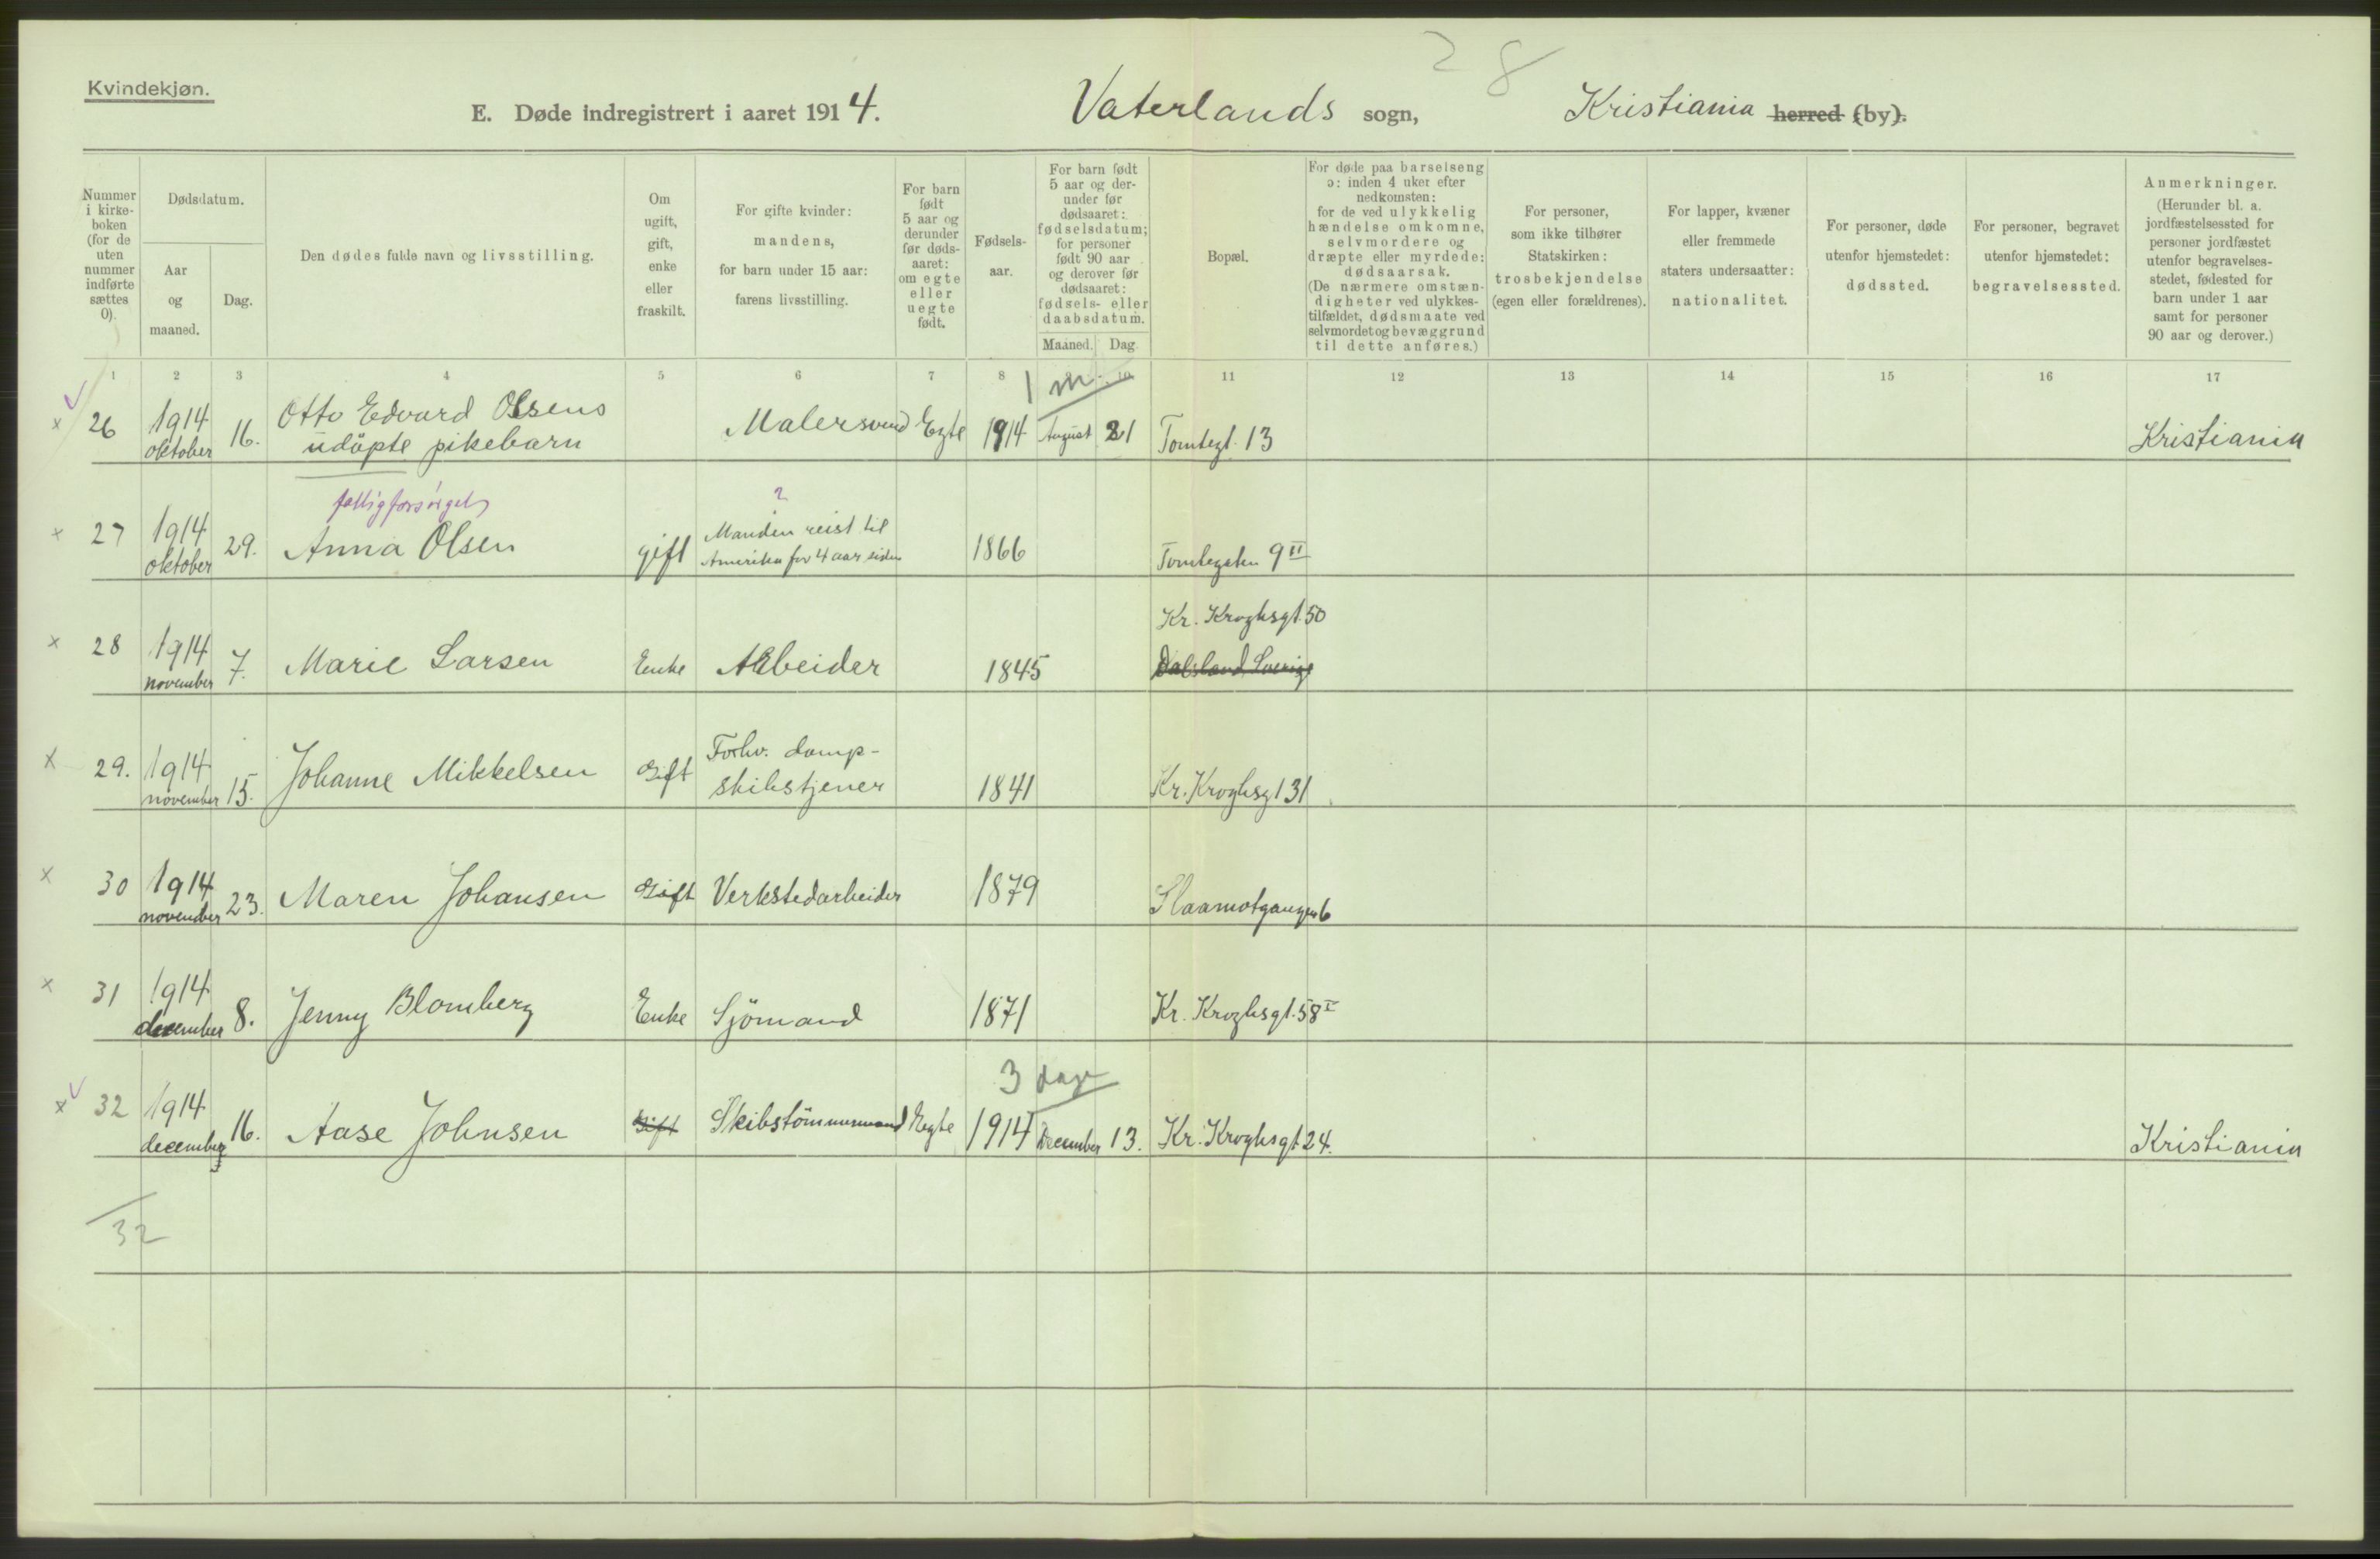 28
Kvindekjøn.
E. Døde indregistrert i aaret 1914. Vaterlands sogn, Kristiania herred (by).
Nummer i kirke-boken (for de uten nummer indførte sættes 0).
Dødsdatum.
Aar og maaned.
Dag.
Den dødes fulde navn og livsstilling.
Om ugift, gift, enke eller fraskilt.
For gifte kvinder: mandens, for barn under 15 aar: farens livsstilling.
For barn født 5 aar og derunder før døds-aaret: om egte eller uegte født.
Fødsels-aar.
For barn født 5 aar og der-under før dødsaaret: fødselsdatum; for personer født 90 aar og derover før dødsaaret: fødsels- eller daabsdatum.
Maaned. Dag.
Bopæl.
For døde paa barselseng ɔ: inden 4 uker efter nedkomsten: for de ved ulykkelig hændelse omkomne, selvmordere og dræpte eller myrdede: dødsaarsak. (De nærmere omstæn-digheter ved ulykkes-tilfældet, dødsmaate ved selvmordet og bevæggrund til dette anføres.)
For personer, som ikke tilhører Statskirken: trosbekjendelse (egen eller forældrenes).
For lapper, kvæner eller fremmede staters undersaatter: nationalitet.
For personer, døde utenfor hjemstedet: dødssted.
For personer, begravet utenfor hjemstedet: begravelsessted.
Anmerkninger. (Herunder bl. a. jordfæstelsessted for personer jordfæstet utenfor begravelses-stedet, fødested for barn under 1 aar samt for personer 90 aar og derover.)
1 2 3 4 5 6 7 8 9 10 11 12 13 14 15 16 17
1 m
26 1914 oktober 16. Otto Edvard Olsens udöpte pikebarn Malersvend Egte 1914 August 21 Tomtegt. 13 Kristiania
fattigforsörget ?
27 1914 oktober 29. Anna Olsen gift Manden reist til Amerika for 4 aar siden 1866 Tomtegaten 9 II
28 1914 november 7. Marie Larsen Enke Arbeider 1845 Kr. Kroghsgt. 50 Dalsland Sverige
29. 1914 november 15. Johanne Mikkelsen Gift Forhv. damp-skibstjener 1841 Kr. Kroghsgt 31
30 1914 november 23. Maren Johansen Gift Verkstedarbeider 1879 Slaamotgangen 6
31 1914 december 8. Jenny Blomberg Enke Sjömand 1871 Kr. Kroghsgt. 58 I
3 dage
32 1914 december 16. Aase Johnsen Gift Skibstömmermand Egte 1914 December 13. Kr. Kroghsgt. 24. Kristiania
32